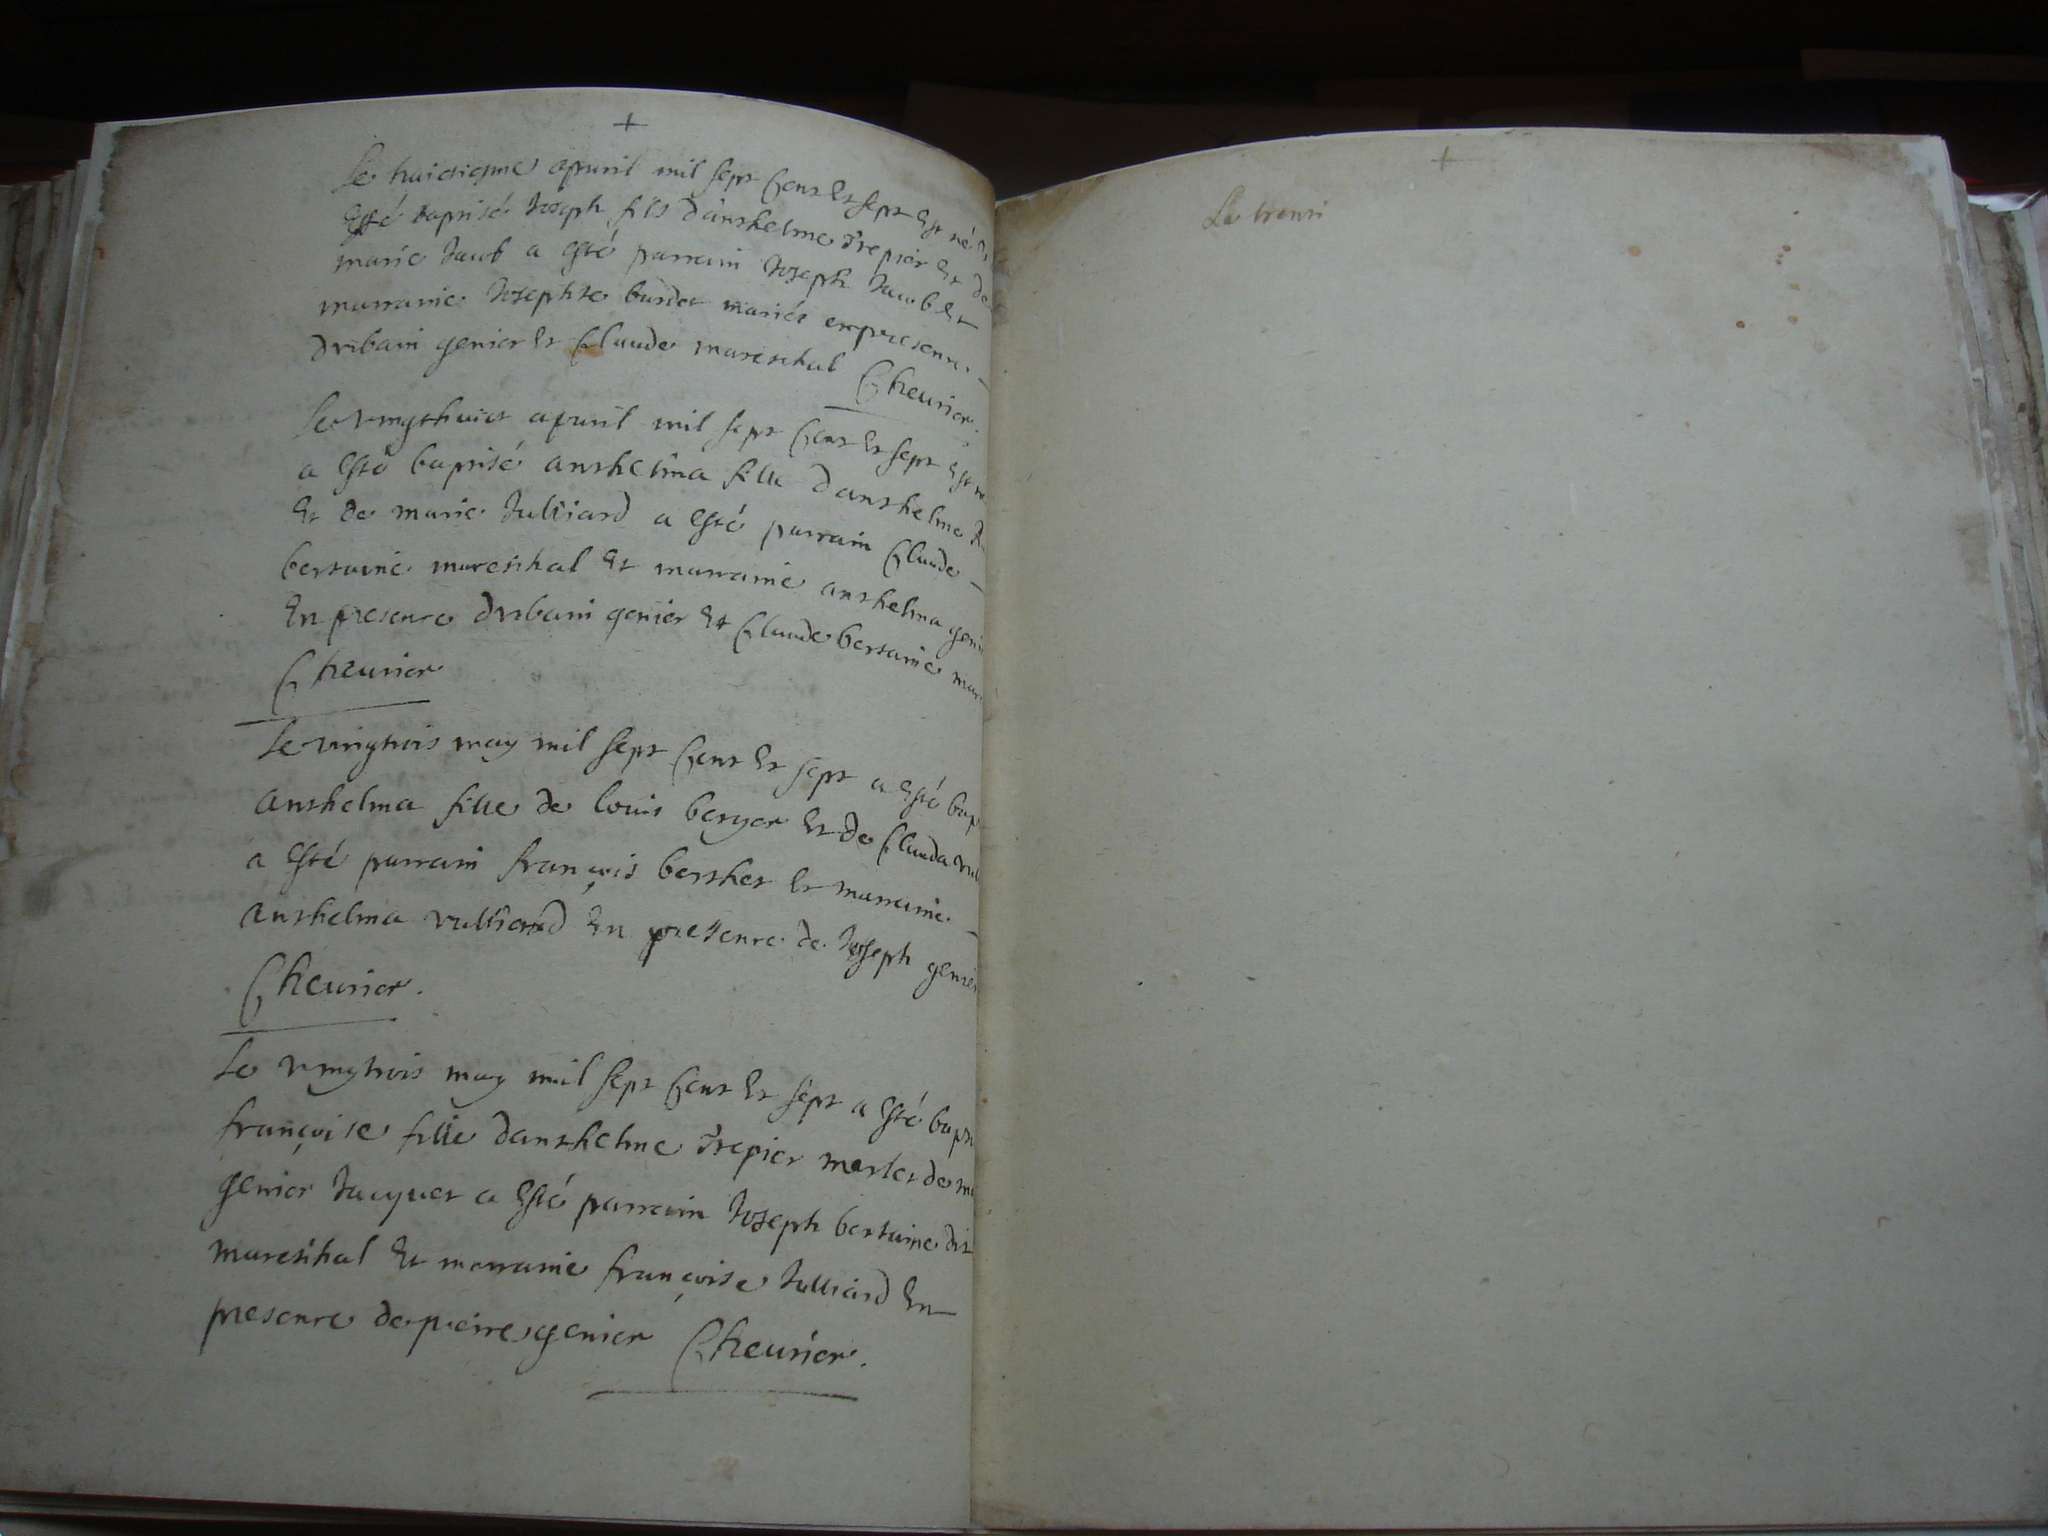 +
Le huictiesme apuril mil sept Cent Et sept Est né Et
Esté baptisé Joseph fils d'anthelme Trepier Et de
marie Jacob a Esté parrain Joseph Jacob Et
marraine Josephte burdet mariés en presence
d'vrbain genier Et Claude mareschal Cheurier.
Le vingthuict apuril mil sept Cent Et sept Est
a Esté baptisé anthelma fille d'anthelme
Et de marie Julliard a Esté parrain Claude
bertaine mareschal Et marraine anthelma
En presence d'vrbain genier Et Claude bertaine
Cheurier
Le vingtrois may mil sept Cent Et sept a Esté bap
anthelma fille de louis berger Et de Clauda
a Esté parrain françois berthet Et marraine
anthelma vulliard En presence de Joseph genier
Cheurier.
Le vingtrois may mil sept Cent Et sept a Esté bapt
françoise fille danthelme Trepier merlet de
genier Jacquet a Esté parrain Joseph bertaine dit
mareschal Et marraine françoise Julliard En
presence de peire genier Cheurier.
+
Le trenti